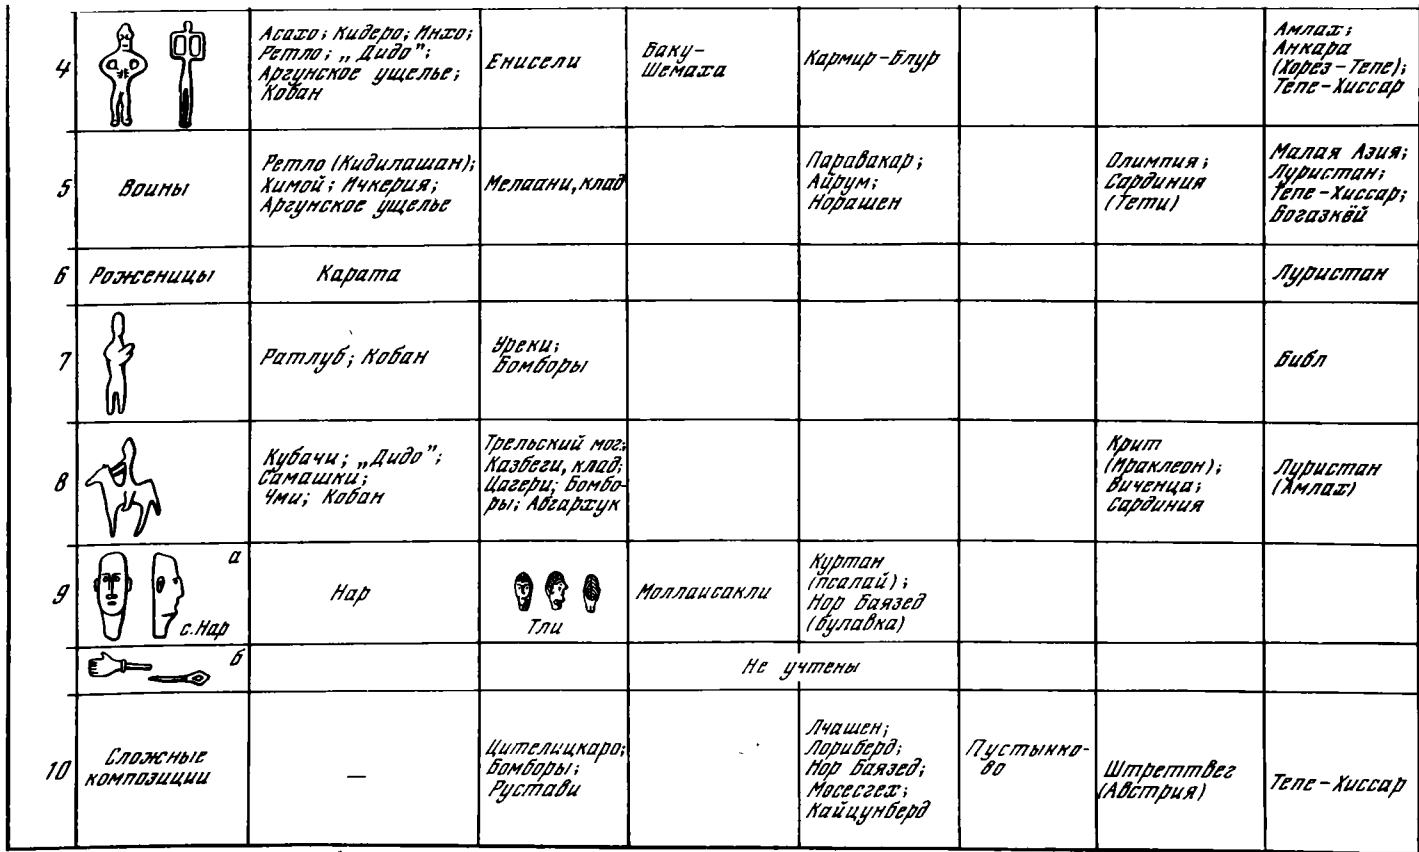 4
Асахо; Кидеро; Инхо;
Ретло; „Дидо”;
Аргунское ущелье;
Кобан
Енисели
Баку-
Шемаха
Кармир-Блур
Амлах;
Анкара
(Хорез-Тепе);
Тепе-Хиссар
5
Воины
Ретло (Кидилашан);
Химой; Ичкерия;
Аргунское ущелье
Мелаани, клад
Паравакар;
Айрум;
Норашен
Олимпия;
Сардиния
(Тети)
Малая Азия;
Луристан;
Тепе-Хиссар;
Богазкёй
6
Роженицы
Карата
Луристан
7
Ратлуб; Кобан
Уреки;
Бомборы
Библ
8
Кубачи; „Дидо”;
Самашки;
Чми; Кобан
Трельский мог.;
Казбеги, клад;
Цагери; Бомбо-
ры; Абгархук
Крит
(Ираклеон);
Виченца;
Сардиния
Луристан
(Амлах)
9
а
с. Нар
Нар
Тли
Моллаисакли
Куртан
(псалай);
Нор Баязед
(булавка)
б
Не учтены
10
Сложные
композиции
—
Цителицкаро;
Бомборы;
Рустави
Лчашен;
Лориберд;
Нор Баязед;
Мосесгех;
Кайцунберд
Пустынко-
во
Штреттвег
(Австрия)
Тепе-Хиссар